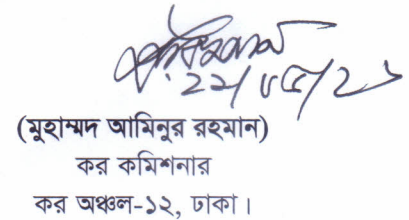 (মুহাম্মদ আমিনুর রহমান)
কর কমিশনার
কর অঞ্চল-১২, ঢাকা।